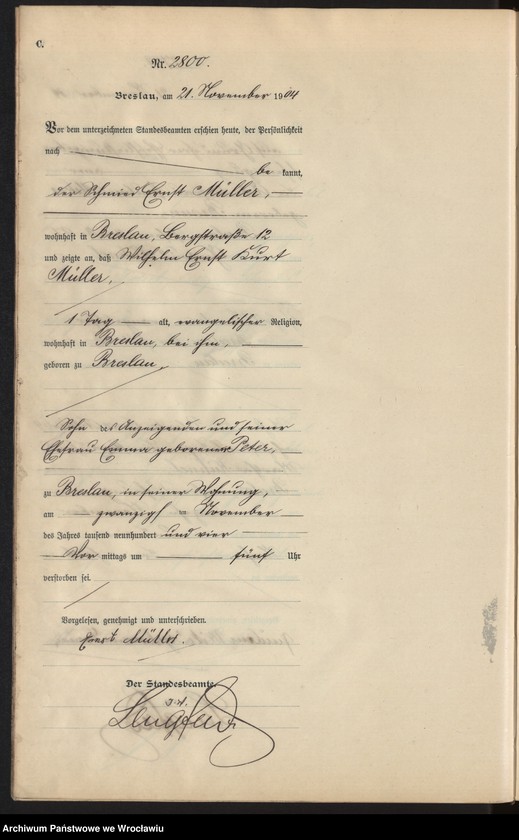 C.
Nr. 2800.
Breslau, am 21. November 1904
Vor dem unterzeichneten Standesbeamten erschien heute, der Persönlichkeit
nach
be kannt,
der Schmied Ernst Müller,
wohnhaft in Breslau, Bergstraße 12
und zeigte an, daß Wilhelm Ernst Kurt
Müller,
1 Tag alt, evangelischer Religion,
wohnhaft in Breslau, bei ihm,
geboren zu Breslau,
Sohn des Anzeigenden und seiner
Ehefrau Emma geborenen Peter,
zu Breslau, in seiner Wohnung,
am zwanzigst en November
des Jahres tausend neunhundert und vier
Vor mittags um fünf Uhr
verstorben sei.
Vorgelesen, genehmigt und unterschrieben.
Ernst Müller.
Der Standesbeamte.
Archiwum Państwowe we Wrocławiu